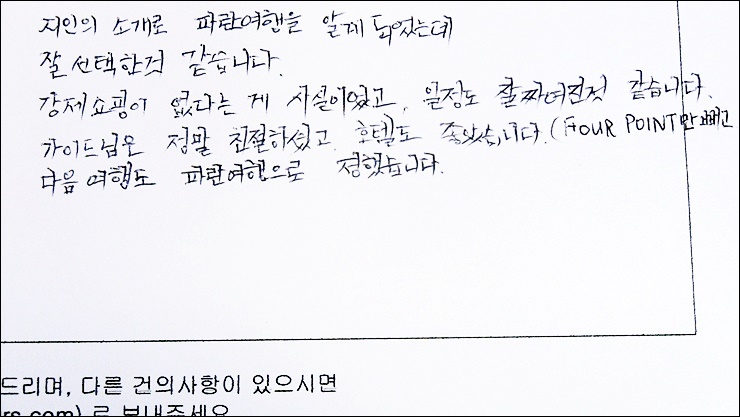 지인의 소개로 파란여행을 알게 되었는데
잘 선택한것 같습니다.
강제쇼핑이 없다는 게 사실이었고, 일정도 잘짜여진것 같습니다.
가이드님은 정말 친절하셨고 호텔도 좋았습니다.(FOUR POINT만 빼고
다음 여행도 파란여행으로 정했습니다.
드리며, 다른 건의사항이 있으시면
rs.com) 로 보내주세요